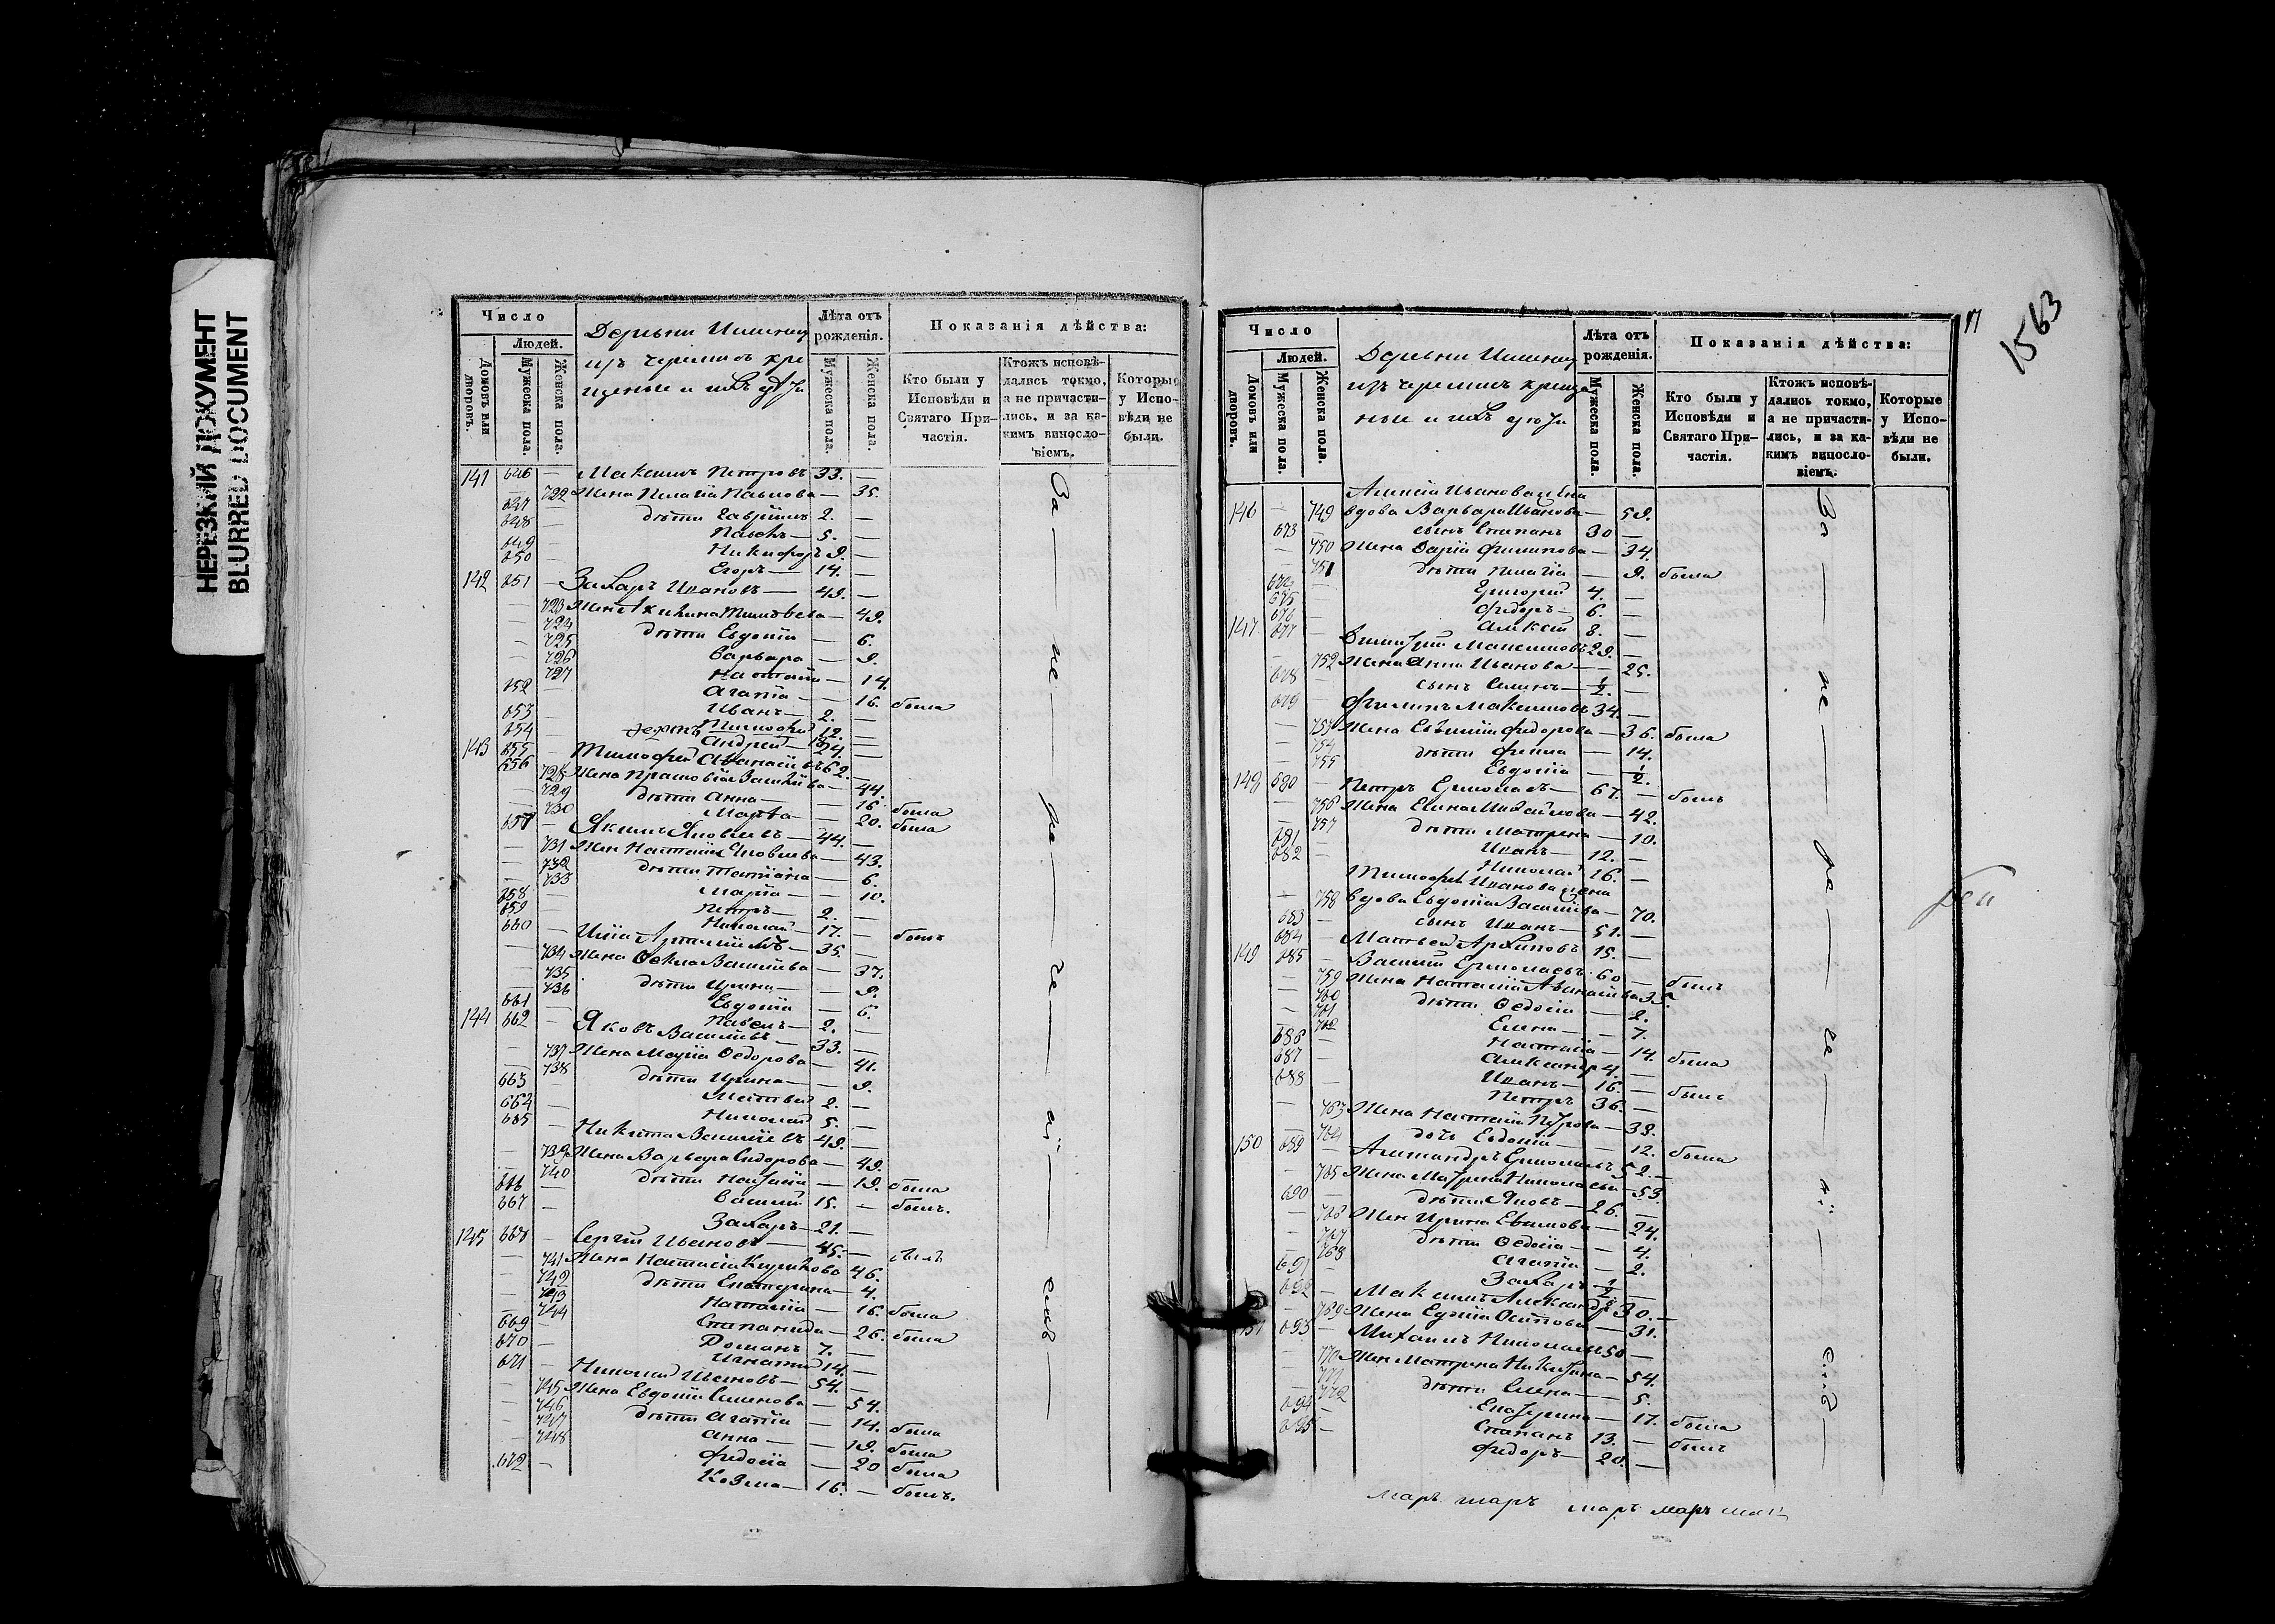 НЕРЕЗКИЙ ДОКУМЕНТ
BLURRED DOCUMENT
Число
Людей.
Домовъ или дворовъ.
Мужеска пола.
Женска пола.
Деревни
изъ черемисъ кре
щеные и ихъ дѣти
Лѣта отъ рожденія.
Мужеска пола.
Женска пола.
Показанія дѣйства:
Кто были у Исповѣди и Святаго Причастія.
Ктожъ исповѣдались токмо, а не причастились, и за какимъ винословіемъ.
Которые у Исповѣди не были.
141 646 — Максимъ Петровъ 33. —
— 722 Жена Пелагія Павлова — 35.
647 — дѣти Гавріилъ 2. —
648 — Павелъ — 5. —
649 — Никифоръ 9. —
650 — Егоръ — 14. —
142 651 — Захаръ Ивановъ — 49. —
— 723 Жена — 49.
— 724 дѣти Евдокія — 6.
— 725 Варвара — 9.
— 726 Наталія — 14.
— 727 Агапія — 16. была
652 — Иванъ — 2. —
653 — Тимофей 12. —
654 — Андрей — 24. —
143 655 — Тимофей 62. —
656
— 728 Жена Прасковія Василіева — 44.
— 729 дѣти Анна — 16. была
— 730 Марѳа — 20. была
657 — Якимъ Яковлевъ — 44. —
— 731 Жена Наталія Яковлева — 43.
— 732 дѣти Татіана — 6.
— 733 Марія — 10.
658 — Петръ — 2. —
659 — Николай — 17. — былъ
660 — Илія 35. —
— 734 Жена Ѳекла Василіева — 37.
— 735 дѣти Ирина — 9.
— 736 Евдокія — 6.
661 — Павелъ — 2. —
144 662 — Яковъ Василіевъ — 33. —
— 737 Жена Марія Ѳедорова — 41.
— 738 дѣти Ирина — 9.
663 — Матвей 2. —
664 — Николай 5. —
665 — Никита Василіевъ 49. —
— 739 Жена Варвара Сидорова — 49.
— 740 дѣти Наталія — 19. была
666 — Василій 15. — былъ.
667 — Захаръ — 21. —
145 668 — Сергій Ивановъ — 45. — былъ
— 741 Жена Наталія 46.
— 742 дѣти Екатерина — 4.
— 743 Наталія — 16. была
— 744 Степанида — 26. была
669 — Романъ 7. —
670 — Игнатій 14. —
671 — Николай Ивановъ — 54. —
— 745 Жена Евдокія Семенова — 54.
— 746 дѣти Агапія — 14. была
— 747 Анна — 19. была
— 748 Федосія — 20 была
672 — Козма — 16. — былъ.
За — не — ра — че — ні — емъ —
1563
Число
Людей.
Домовъ или дворовъ.
Мужеска пола.
Женска пола.
Деревни
изъ черемисъ креще
ные и ихъ дѣти
Лѣта отъ рожденія.
Мужеска пола.
Женска пола.
Показанія дѣйства:
Кто были у Исповѣди и Святаго Причастія.
Ктожъ исповѣдались токмо, а не причастились, и за какимъ винословіемъ.
Которые у Исповѣди не были.
Алексія Иванова жена
146 — 749 вдова Варвара Иванова — 59.
673 — сынъ Степанъ 30 —
— 750 Жена Дарія Филипова — 34.
— 751 дѣти Пелагія — 9. была
674 — Григорій 4. —
675 — Федоръ — 6. —
676 — Алексей 8. —
147 677 — Димитрій Максимовъ 29. —
— 752 Жена Анна Иванова — 25.
678 — сынъ 1/2. —
679 — Филипъ Максимовъ 34. —
— 753 Жена Федорова — 36. была
— 754 дѣти — 14.
— 755 Евдокія — 1/2.
148 680 — Петръ Ермолаевъ — 67. — былъ
— 756 Жена Елена Михайлова — 42.
— 757 дѣти Матрена — 10.
681 — Иванъ — 12. —
682 — Николай 16. —
Тимофея Иванова жена
— 758 вдова Евдокія Василіева — 70.
683 — сынъ Иванъ — 51. —
684 — Матвей Архиповъ 15. —
149 685 — Василій Ермолаевъ 60 — былъ
— 759 Жена Наталія
— 760 дѣти Ѳедосія — 2.
— 761 Елена — 7.
— 762 Наталія — 14. была
686 — Александръ 4. —
687 — Иванъ — 16. — былъ
688 — Петръ 36. —
— 763 Жена Наталія Петрова — 38.
— 764 дочь Евдокія — 12. была
150 689 — Александръ Ермолаевъ 52. —
— 765 Жена Матрена Николаева — 53.
690 — дѣти Яковъ — 26. —
— 766 Жена Ирина Евѳимова — 24.
— 767 дѣти Ѳедосія — 4.
— 768 Агапія — 2.
691 — Захаръ 1/2 —
692 — Максимъ 30. —
— 769 Жена Осипова — 31.
151 693 — Михаилъ Николаевъ 50 —
— 770 Жена Матрена Никитина — 54.
— 771 дѣти Елена — 5.
— 772 Екатерина — 17. была
694 — Степанъ 13. — былъ
695 — Федоръ — 20. —
За — не — ра — че — ні — емъ —